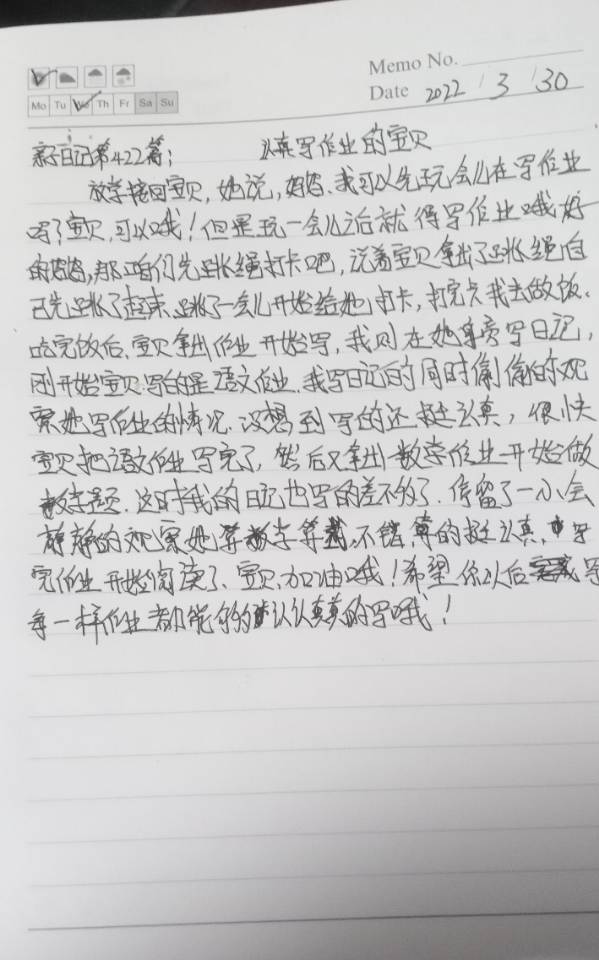 Memo No.
Mo Tu We Th Fr Sa Su
Date 2022 / 3 / 30
亲子日记第422篇: 认真写作业的宝贝
放学接回宝贝,她说,妈妈.我可以先玩会儿在写作业
吗?宝贝,可以哦!但是玩一会儿之后就得写作业哦好
的妈妈,那咱们先跳绳打卡吧,说着宝贝拿出了跳绳自
己先跳了起来.跳了一会儿开始给她打卡,打完卡我去做饭.
吃完饭后.宝贝拿出作业开始写,我则在她身旁写日记,
刚开始宝贝写的是语文作业.我写日记的同时偷偷的观
察她写作业的情况.没想到写的还挺认真,很快
宝贝把语文作业写完了,然后又拿出数学作业开始做
数学题.这时我的日记也写的差不多了.停留了一小会
静静的观察她算数学算 不错,算的挺认真. 写
完作业开始阅读了.宝贝.加油哦!希望你以后 写
每一样作业都能够 认认真真的写哦!